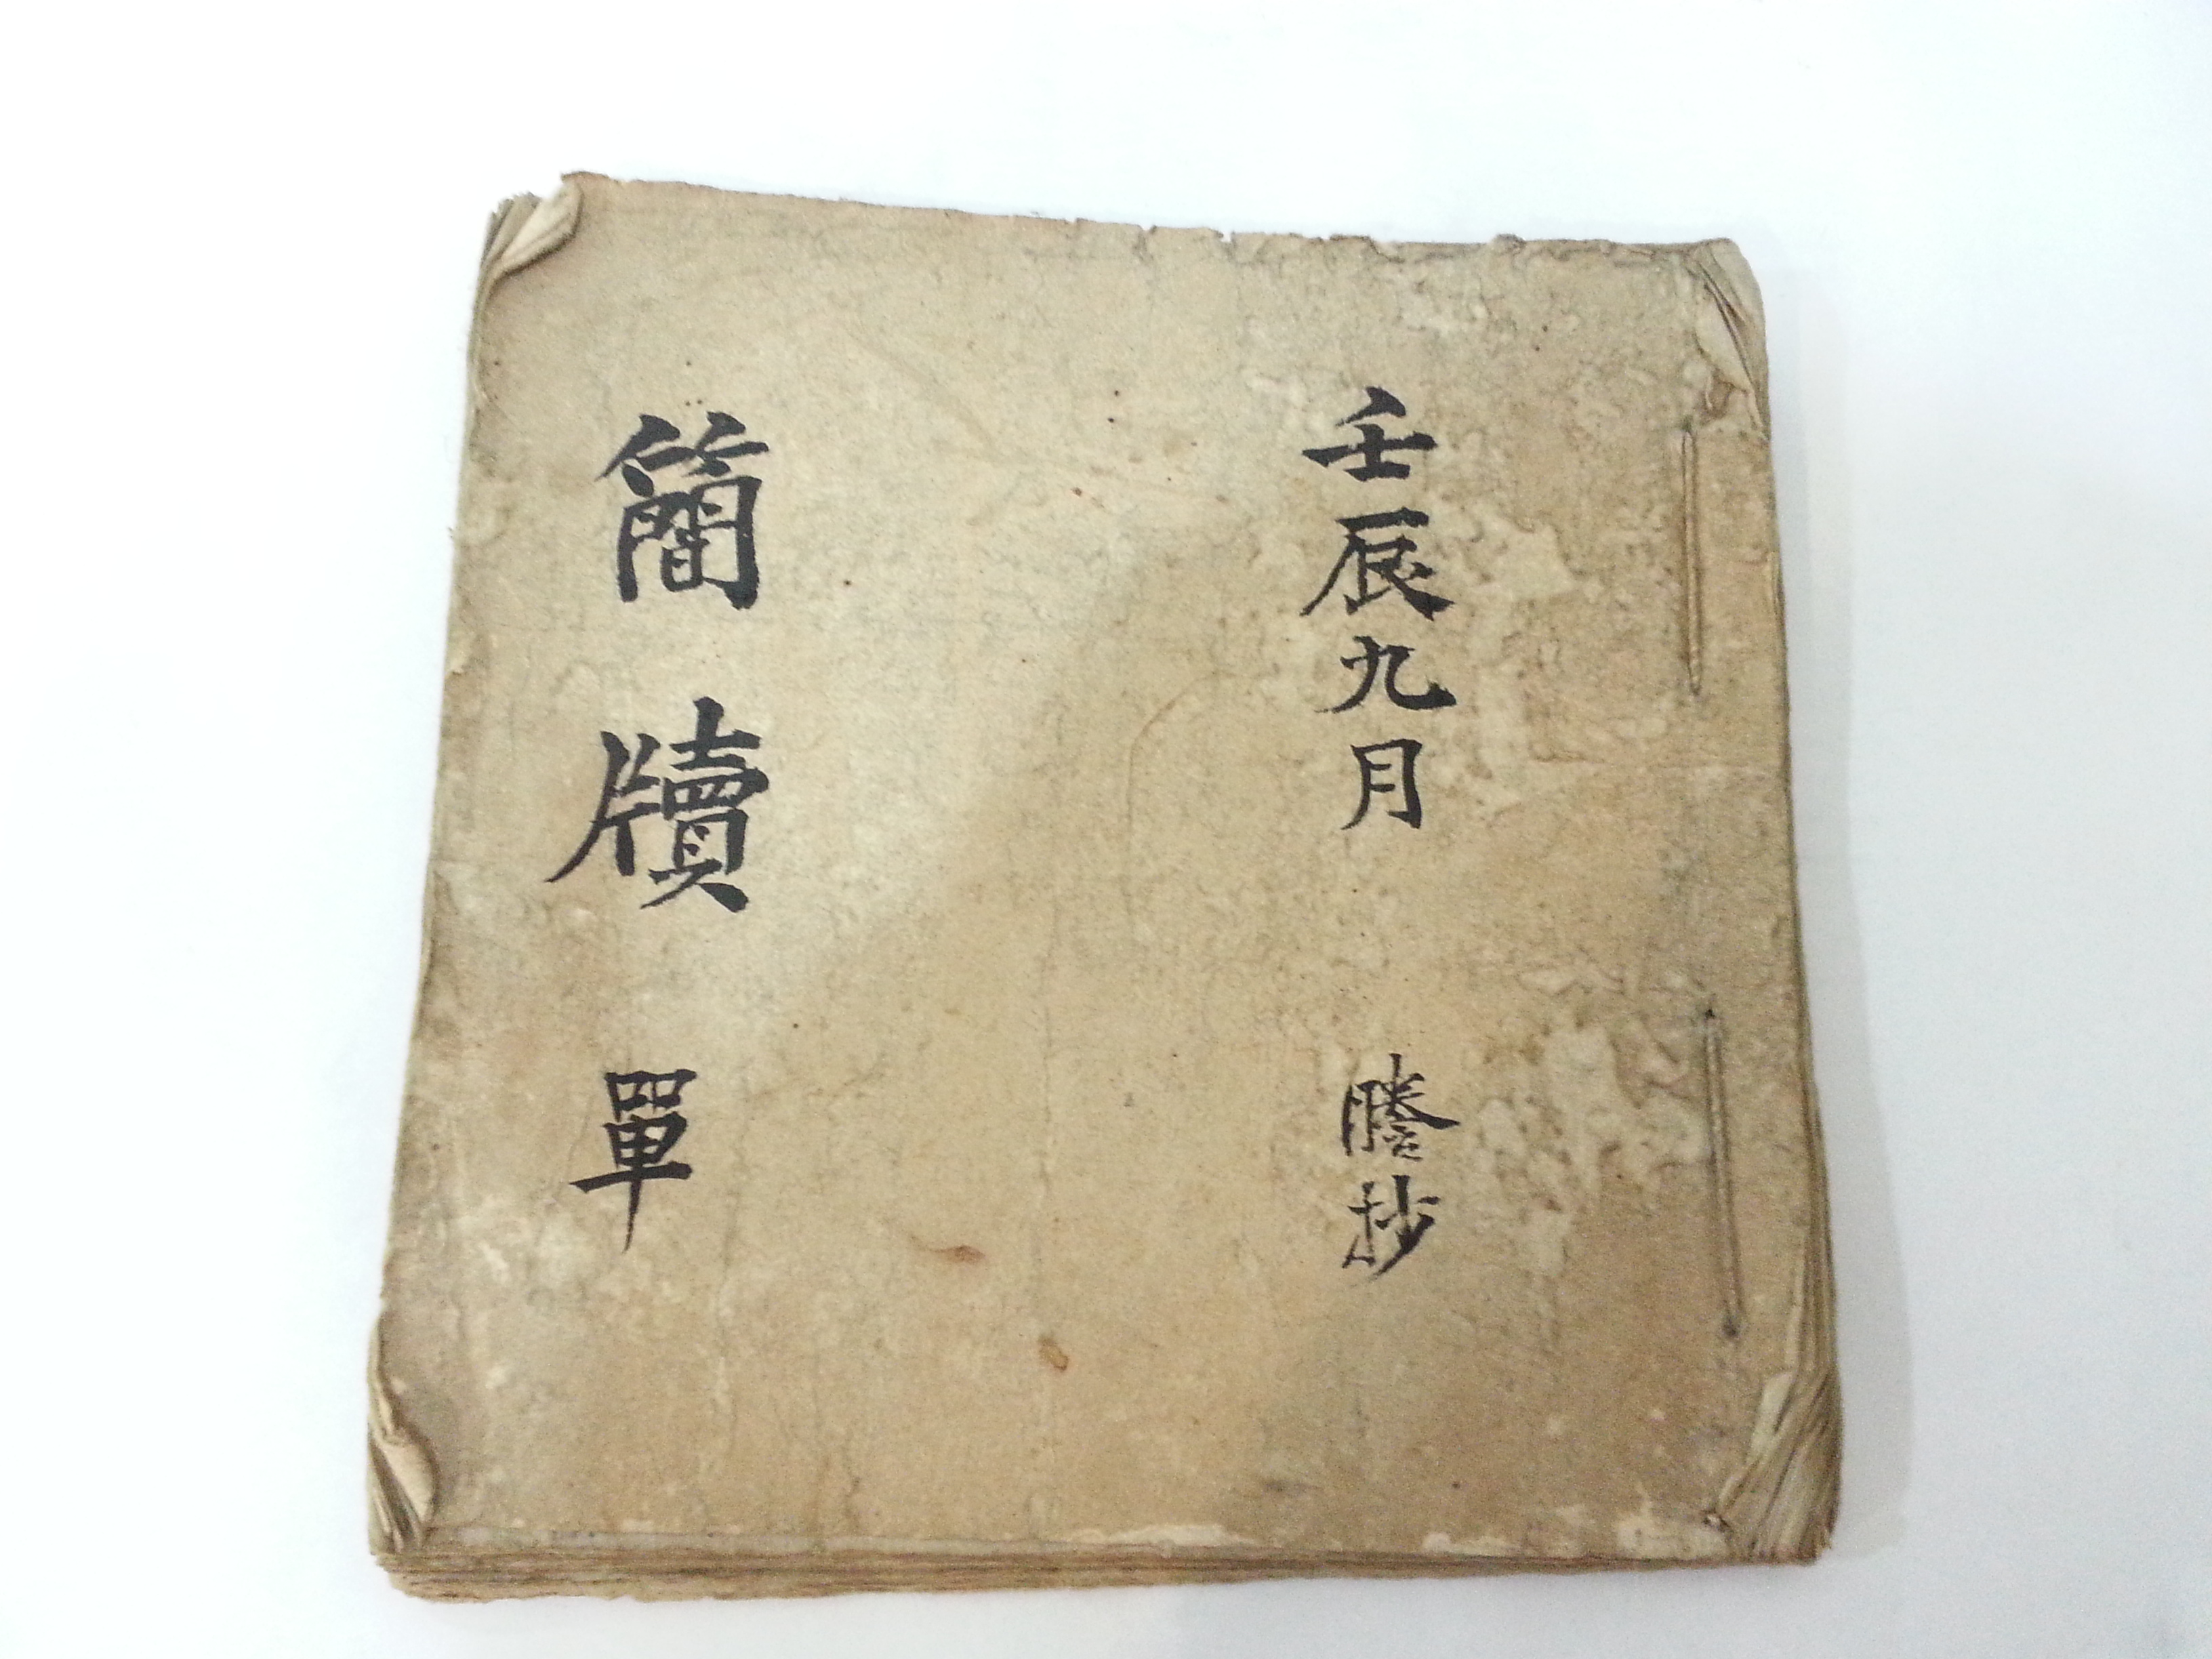 壬辰九月 謄抄
簡牘 單